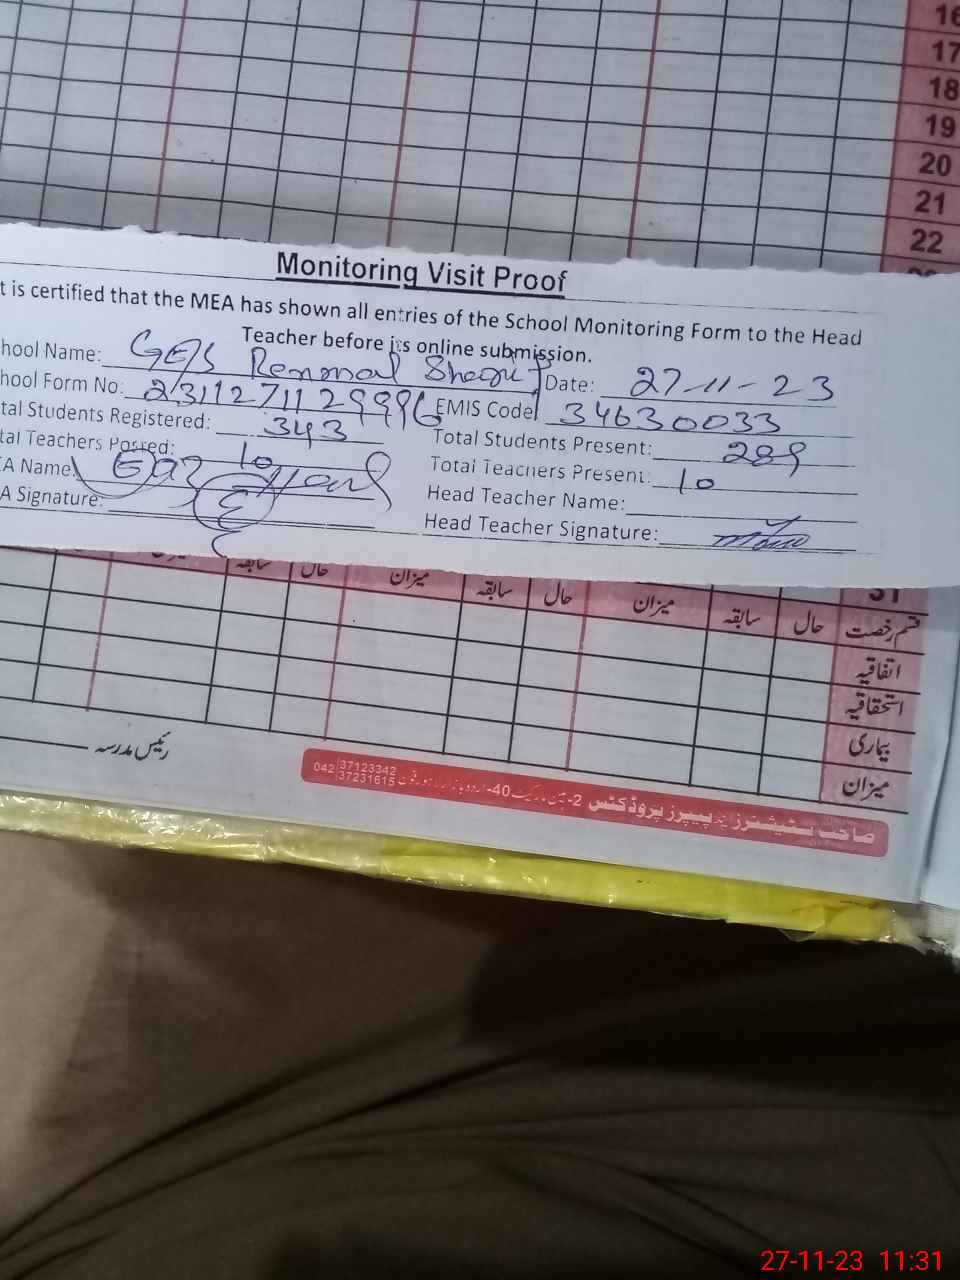 16
17
18
19
20
21
22
Monitoring Visit Proof
t is certified that the MEA has shown all entries of the School Monitoring Form to the Head
Teacher before its online submission.
hool Name: GES Sharif Date: 27-11-23
hool Form No: EMIS Code 34630033
tal Students Registered: 343 Total Students Present: 289
tal Teachers Posted: 10 Total Teachers Present: 10
A Name Head Teacher Name:
A Signature: Head Teacher Signature:
31
قسم رخصت حال سابقہ میزان حال سابقہ میزان حال سابقہ
اتفاقیہ
استحقاقیہ
بیماری
میزان
رئیس مدرسہ
صاحب سٹیشنرز اینڈ پیپرز پروڈکٹس 2- 40-اردو بازار لاہور فون 042 37123342
37231615
27-11-23 11:31